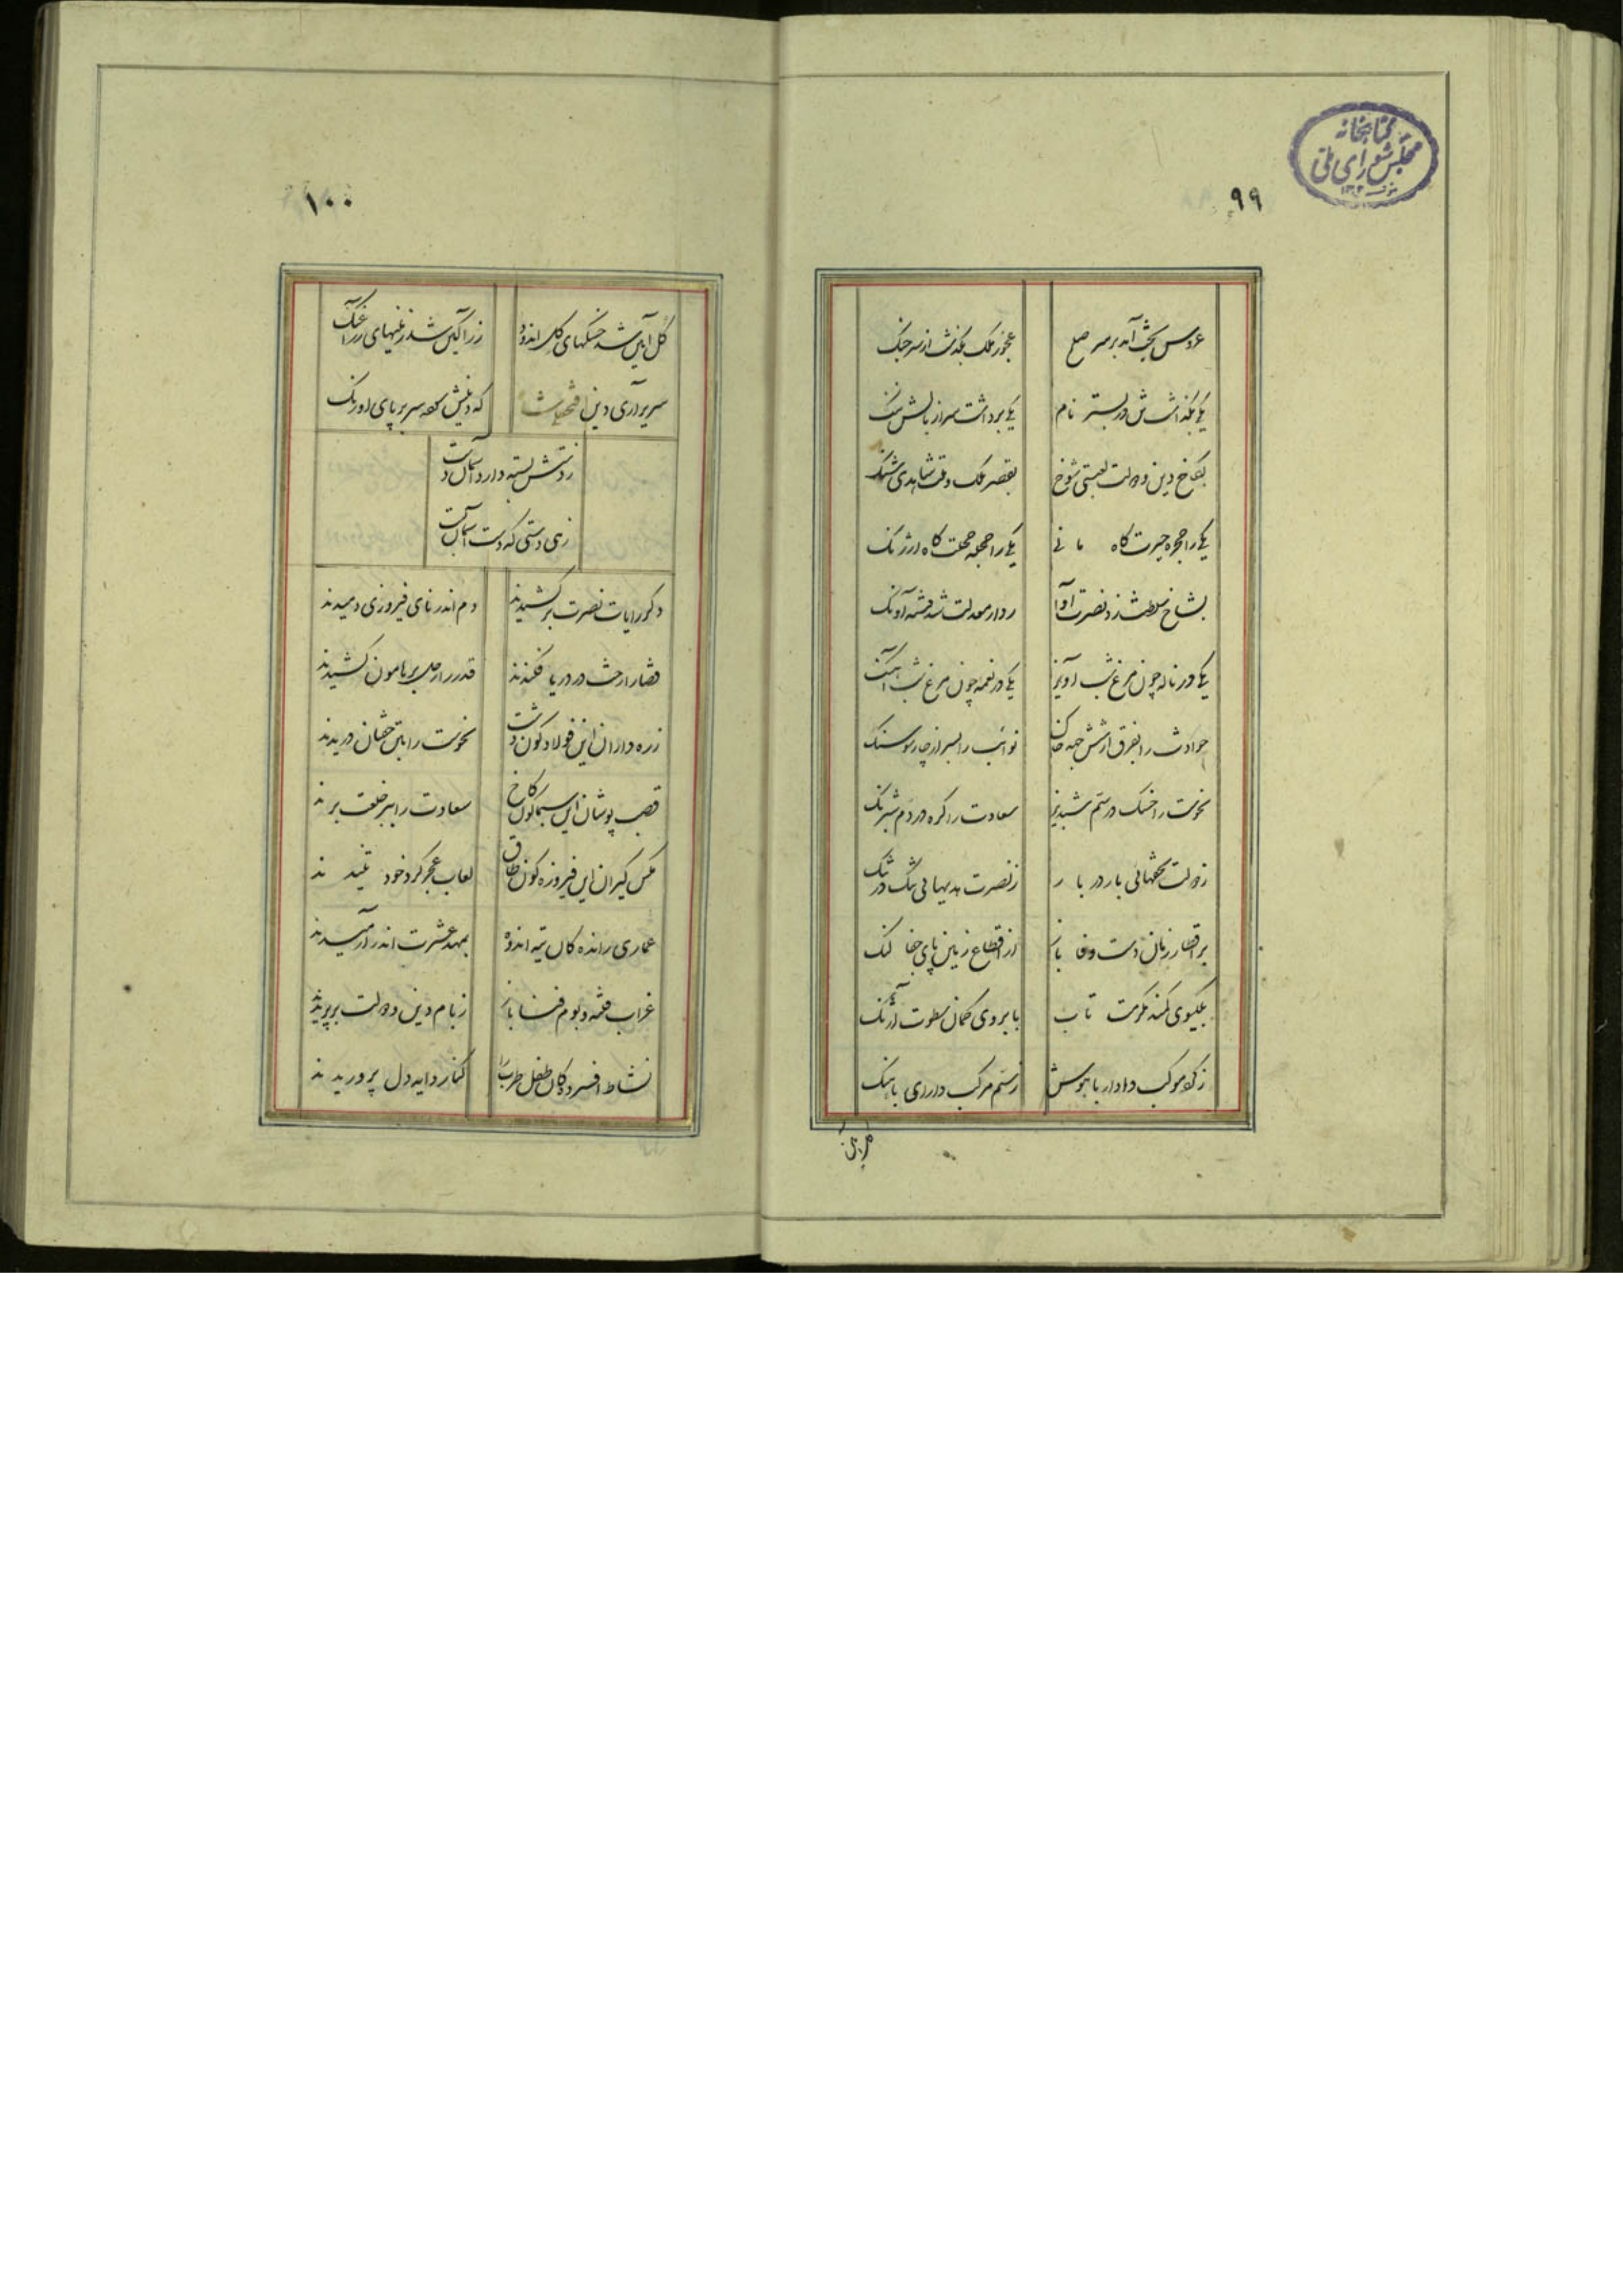 کتابخانه
مجلس شورای ملی
۹۹
عروس بخت آمد بر سر صلح
عجوز ملک بگذشت از سر جنگ
یکی بگذاشت تن در بستر نام
یکی برداشت سر از بالش ننگ
بکاخ دین و دولت لعبتی شوخ
بقصر ملک و ملت شاهدی شنگ
یکی را حجره حیرت گاه مانی
یکی را حجله خجلت گاه ارژنگ
بشاخ سلطنت زد نصرت آوا
ز دار معدلت شد فتنه آونگ
یکی در ناله چون مرغ شب آویز
یکی در نغمه چون مرغ شب آهنگ
حوادث را بفرق از شش جهه خاک
نوائب را بسر از چار سو سنگ
نحوست را خسک در سم شبدیز
سعادت را گره در دم شبرنگ
ز دولت تحفهائی بار در بار
ز نصرت هدیهائی تنگ در تنگ
بر اقطار زمان دست وفا باز
از اقطاع زمین پای جفا لنگ
بگیسوی کمند مکرمت تاب
بابروی کمان سطوت آژنگ
ز گرد موکب دادار با هوش
ز سم مرکب دارای با هنگ
۱۰۰
گل آیین شد خسکهای گل اندود
زر آگین شد زمینهای زر آهنگ
سریر آرای دین فتحعلیشاه
که دینش نهد سر بر پای اورنگ
ز دستش بسته دارد آسمان دست
زهی دستی که دست آسمان بست
دگر رایات نصرت برکشیدند
دم اندر نای فیروزی دمیدند
قضا را رخت در دریا فکندند
قدر را رحل بر هامون کشیدند
زره داران این فولادگون دشت
نحوست را بتن خفتان دریدند
قصب پوشان این سیمابگون کاخ
سعادت را ببر خلعت بریدند
مگس گیران این فیروزه گون طاق
لعاب عجز گرد خود تنیدند
عماری راندگان تیه اندوه
بمهد عشرت اندر آرمیدند
غراب فتنه و بوم فسا باز
ز بام دین و دولت بر پریدند
نشاط افسردگان طفل طرب را
کنار دایه دل پروریدند